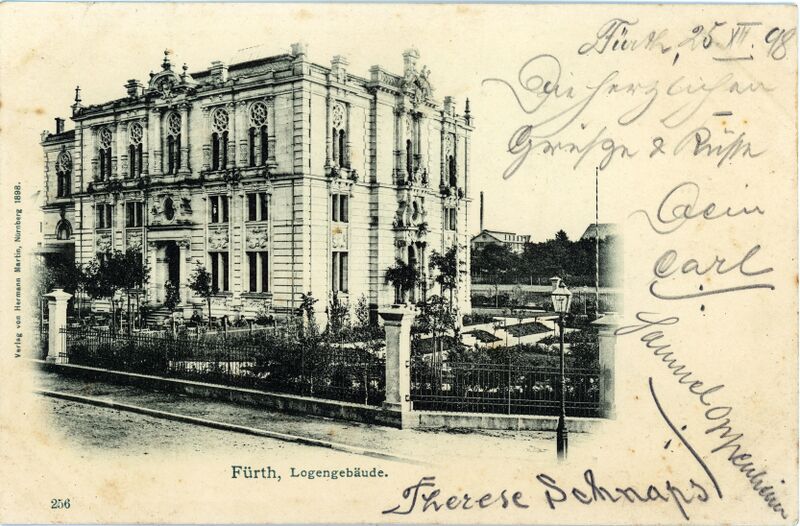 Fürth, 25 XII. 98
Die herzlichen
Grüsze & Küsse
Dein
Carl
Samuel Oppenheimer
Therese Schnaps
Verlag von Hermann Martin, Nürnberg 1898.
Fürth, Logengebäude.
256